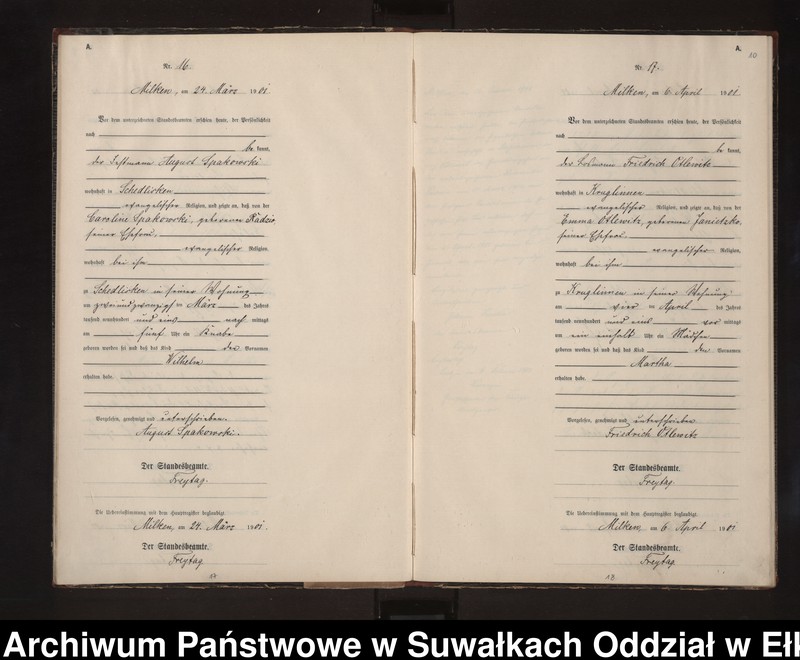 A.
Nr. 16.
Milken, am 24. März 1901
Vor dem unterzeichneten Standesbeamten erschien heute, der Persönlichkeit
nach
be kannt,
der Instmann August Spakowski
wohnhaft in Schedlisken
evangelischer Religion, und zeigte an, daß von der
Caroline Spakowski, geborenen Kudzio
seiner Ehefrau,
evangelischer Religion,
wohnhaft bei ihm
zu Schedlisken in seiner Wohnung
am zweiundzwanzigsten März des Jahres
tausend neunhundert und eins nach mittags
um fünf Uhr ein Knabe
geboren worden sei und daß das Kind den Vornamen
Wilhelm
erhalten habe.
Vorgelesen, genehmigt und unterschrieben.
August Spakowski.
Der Standesbeamte.
Freytag.
Die Uebereinstimmung mit dem Hauptregister beglaubigt.
Milken, am 24. März 1901.
Der Standesbeamte.
Freytag.
A.
10
Nr. 17.
Milken, am 6. April 1901
Vor dem unterzeichneten Standesbeamten erschien heute, der Persönlichkeit
nach
be kannt,
der Losmann Friedrich Otlewitz
wohnhaft in Kruglinnen
evangelischer Religion, und zeigte an, daß von der
Emma Otlewitz, geborenen Janietzko,
seiner Ehefrau,
evangelischer Religion,
wohnhaft bei ihm
zu Kruglinnen in seiner Wohnung
am vier ten April des Jahres
tausend neunhundert und eins vor mittags
um ein einhalb Uhr ein Mädchen
geboren worden sei und daß das Kind den Vornamen
Martha
erhalten habe.
Vorgelesen, genehmigt und unterschrieben
Friedrich Otlewitz
Der Standesbeamte.
Freytag.
Die Uebereinstimmung mit dem Hauptregister beglaubigt.
Milken, am 6. April 1901
Der Standesbeamte.
Freytag.
Archiwum Państwowe w Suwałkach Oddział w Ełk